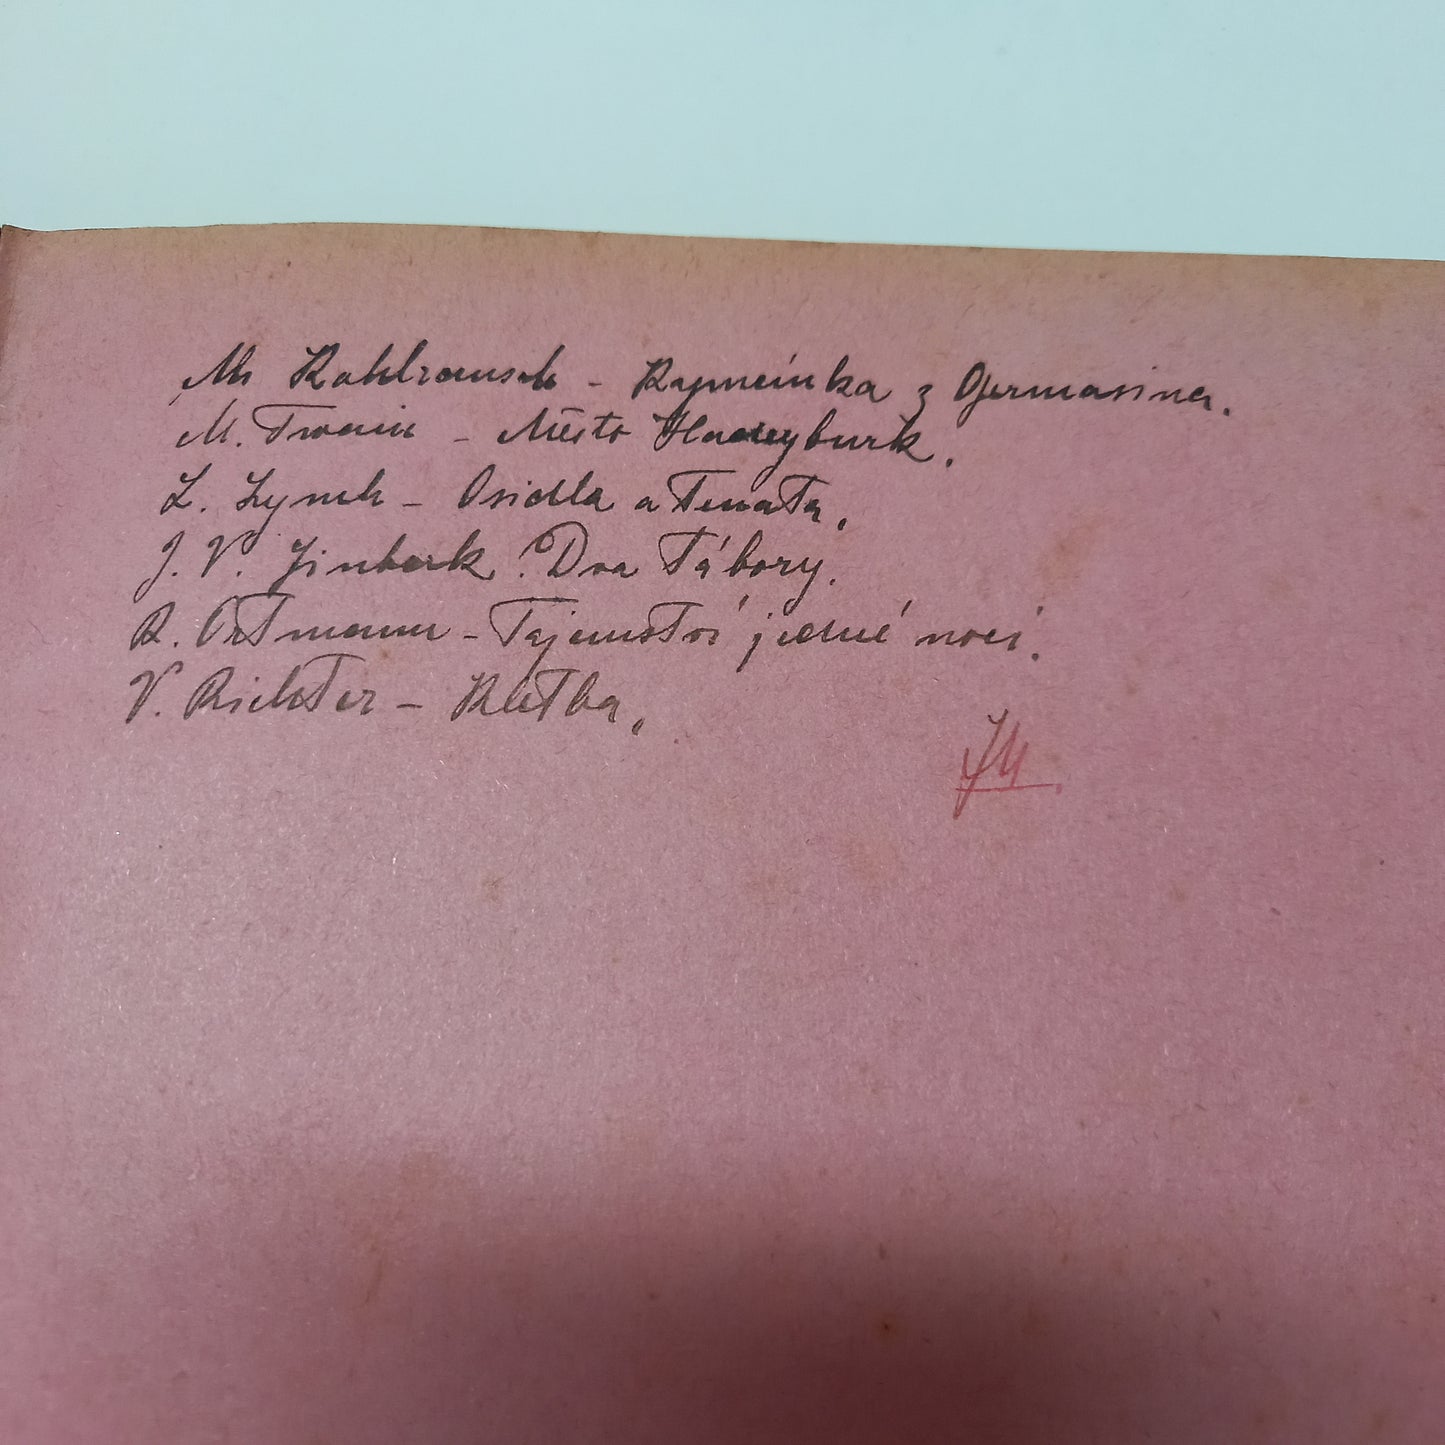 M. Kohlrausch - Kymeínka z Germasina.
M. Twain - Město Hadleyburk.
L. Lynch - Osidla a Tenata.
J. V. Jinberk. Dva Tábory.
R. Ortmann - Tajemství jedné noci.
V. Richter - Kletba.
JM.